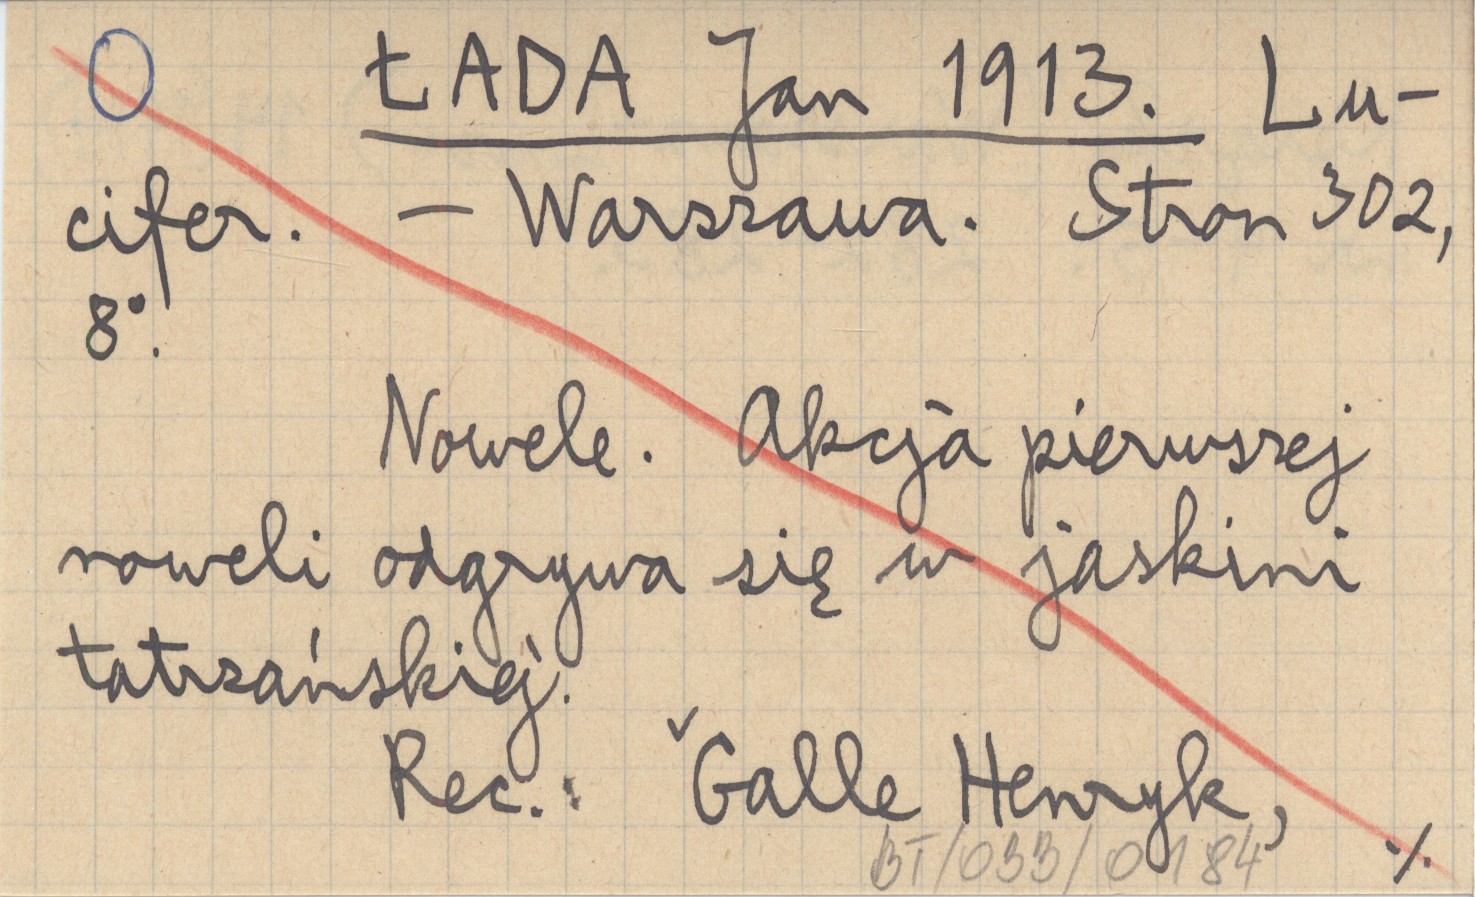 O ŁADA Jan 1913. Lu-
cifer. — Warszawa. Stron 302,
8°.
Nowele. Akcja pierwszej
noweli odgrywa się w jaskini
tatrzańskiej.
Rec.: ˇGalle Henryk,
BT/033/0184 ·/.